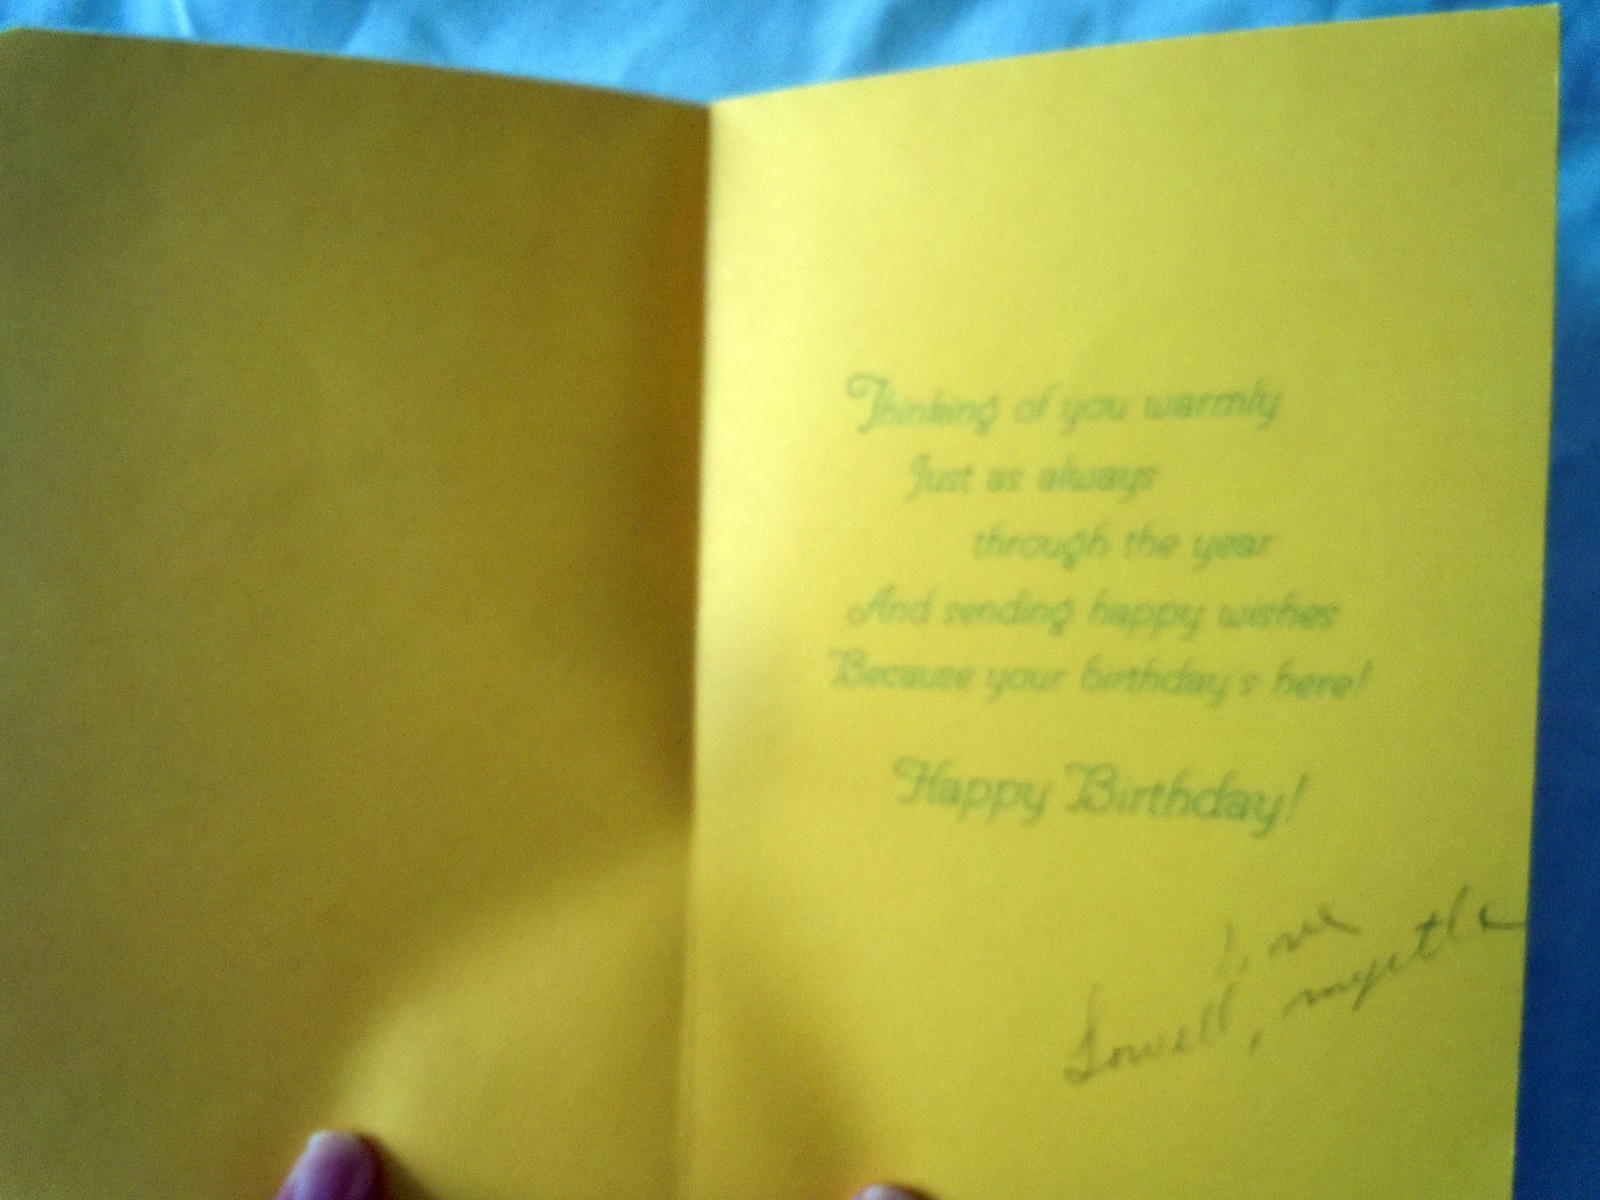 Thinking of you warmly
Just as always
through the year
And sending happy wishes
Because your birthday's here!
Happy Birthday!
Love
Lowell, myrtle